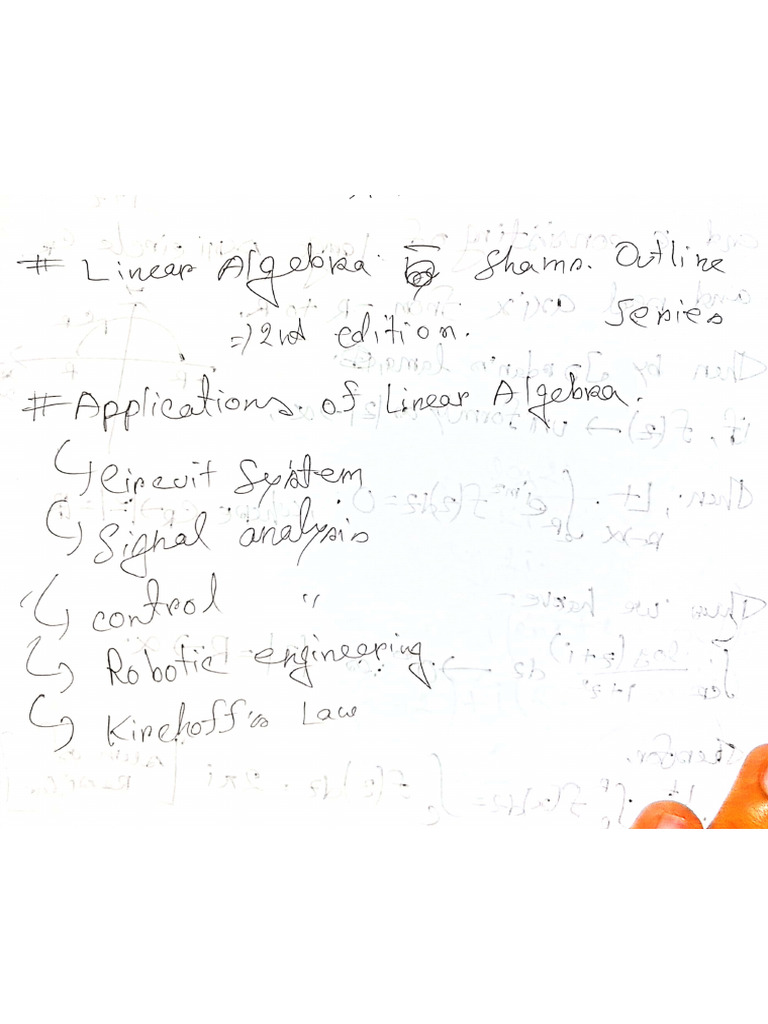 # Linear Algebra Shams. Outline
Series
=> 2nd edition.
# Applications of Linear Algebra.
Circuit System
Signal analysis
control "
Robotic engineering
Kirchoff's Law